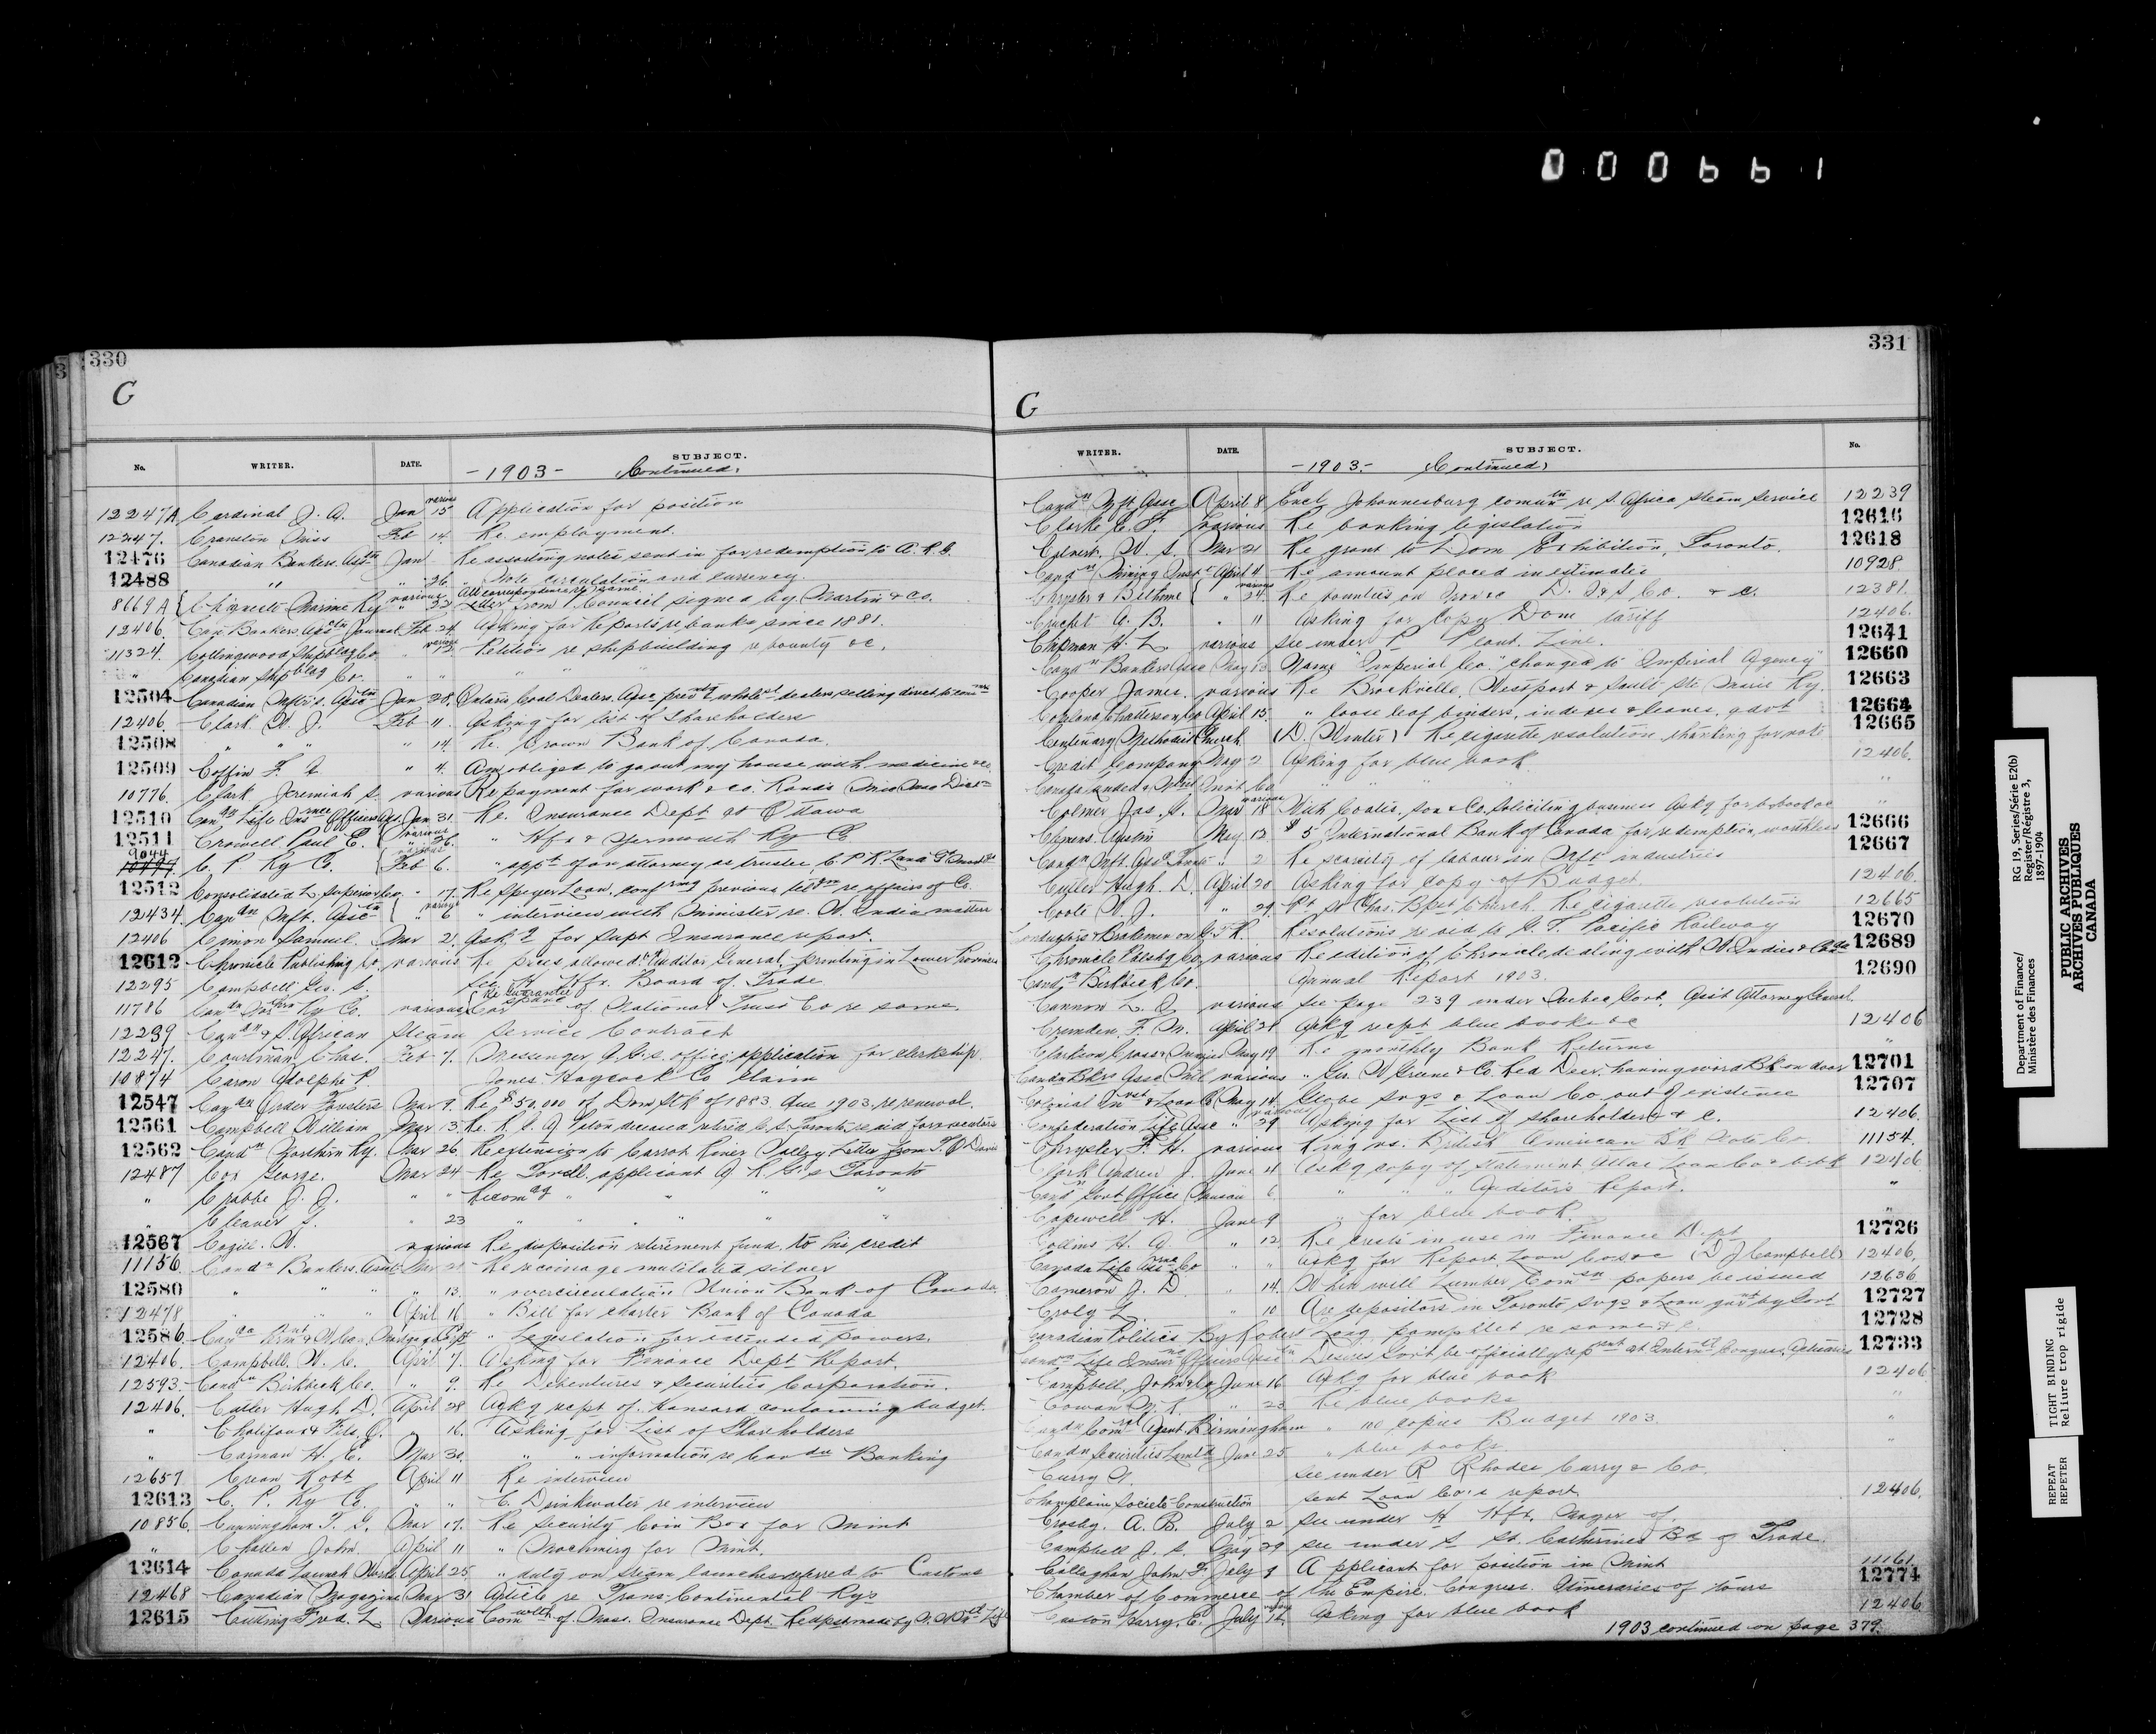 000661
330
C
No. WRITER. DATE. SUBJECT.
- 1903 - Continued.
12247A Cardinal J. A. Jan various 15 Application for position
12247. Cranston Miss Feb 14. Re. employment.
12476 Canadian Bankers Assn Jan Re assorting notes sent in for redemption to A. R. G.
12488 " " 26. " Note circulation and currency.
8669 A Chignecto Marine Ry various " 22 All correspondence re same Letter from Council signed by Martin & Co.
12406. Can Bankers Assctn Journal Feb 24. Asking for reports re banks since 1881.
11324. Collingwood Shipbldg Co. various 12. Petition re shipbuilding re bounty &c.
" Canadian Shipbldg Co. " " "
12504 Canadian Mftr's. Assctn Jan 28. Ontario Coal Dealers Assc preventg wholesl dealers selling direct to
12406. Clark W. J. Feb 11. Asking for list of Shareholders
12508 " " " " 14. Re. Crown Bank of Canada.
12509 Coffin F. " 4. Am obliged to go out my house with medicine &c
10776. Clark Jeremiah S. various Re payment for work & co.
12510 Candn Life Insrnce Officers Ass. Jan 31. Re. Insurance Dept at Ottawa
12511 Crowell Paul E. various " 26. " Hfx & Yarmouth Ry Co
9044 C. P. Ry Co. various Feb 6. " appt of an attorney as trustee C P R Land
12512 Consolidated L. Superior Co. " 17. Re Speyer Loan, confrmg previous re affairs of Co.
12434. Candn Mft. Assctn various " 6 " interview with Minister re. W. India matters
12406 Cimon Samuel. Mar 2. Askg for Supt Insurance report.
12612 Chronicle Publishing Co. various Re prices allowed by Auditor General, printing in Lower Provinces
12295 Campbell Geo. S. See H Hfx. Board of Trade
11786 Candn Northrn Ry Co. various Re Guarantee of National Trust Co re same.
12239 Candn & S. African Steam Service Contract
12247. Courtman Chas. Feb 7. Messenger A. G's. office application for clerkship.
10874 Caron Adolphe P. Jones Haycock Co Claim
12547 Candn Order Foresters Mar 9. Re $50,000 of Dom Stk of 1883. due 1903. re renewal.
12561 Campbell William Mar 13.
12562 Candn Northern Ry. Mar 26. Re extension to Carrot River Valley Letter from T. O Davis
12487 Cox George. Mar 24 Re Torell. applicant A R G's Toronto
" Crabbe J. J. " " Recomdg " " "
" Cleaver S. " 23 " " " " "
12567 Cagill. W. various Re disposition retirement fund. to his credit
11156. Candn Bankers. Assn Mar 21 Re recoinage mutilated silver
12580 " " " " 13. " overcirculation Union Bank of Canada.
12478 " " " April 16 " Bill for charter Bank of Canada
12586. Canda Permnt & W Can. Mortgage Corpt " Legislation for extended powers.
12406. Campbell. W. C. April 7. Asking for Finance Dept Report.
12593. Candn Birkbeck Co. " 9. Re Debentures & Securities Corporation.
12406. Cutler Hugh D. April 28 Askg recpt of. Hansard containing budget.
" Chalifoux & Fils. O. 16. Asking for List of Shareholders
" Carman H. E. Mar 30. " " information re Candn Banking
12657 Crean Robt April 11 Re interview
12613 C. P. Ry Co. " " C. Drinkwater re interview
10856. Cunningham T. G. Mar 17. Re security Coin Box for Mint
" Challen John. April 11 " Machinery for Mint.
12614 Canada Launch Works April 25. " duty on steam launches referred to Customs
12468 Canadian Magazine Mar 31 Article re Trans-Continental Rys
12615 Cutting Fred. L. Various Comwlth of. Mass. Insurance Dept.
331
C
WRITER. DATE. SUBJECT. No.
- 1903 - Continued
Candn Mft Assc April 8 Encl Johannesburg comuntn re S. Africa Steam Service 12239
Clarke C. F. Various Re banking legislation 12616
Calvert. W. S. Mar 21 Re grant to Dom Exhibition, Toronto. 12618
Candn Mining Inst April 4 Re amount placed in estimates 10928
Chrysler & Bethune various " 24. Re bounties on Iron &c D. I & S Co. & c. 12381.
Crucht A. B. " 11 Asking for copy Dom tariff 12406.
Chipman H. L. various see under P Plant. Line. 12641
Candn Bankers Assc May 13 Name "Imperial Co." changed to "Imperial Agency" 12660
Cooper James. various Re Brockville, Westport & Sault Ste Marie Ry. 12663
Copland Chatterson Co April 15. " loose leaf binders, indexes & leaves, govt 12664
Centenary Methodist Church (D. Winter) Re cigarette resolution thanking for vote 12665
Credit Company May 2 Asking for blue book 12406.
" " " "
Colmer Jas. G. Mar various 18 With Coates, Son & Co. soliciting business Askg for b. book &c "
Clemens. Austin May 12 $5 International Bank of Canada for redemption, worthless 12666
Candn Mft. Assc Toronto " 2 Re scarcity of labour in Mft industries 12667
Cutler Hugh. D. April 20 Asking for copy of Budget. 12406.
Coote W. J. " 29 Pt St Chas. Bpst Church. Re cigarette resolution 12665
Conductors & Brakemen on G T R. Resolutions re aid to G. T. Pacific Railway 12670
Chronicle Publshg Co. various Re edition of Chronicle dealing with W. Indies & Canada 12689
Candn Birkbeck Co. Annual Report 1903. 12690
Cannon L. A various See page 239 under Quebec Govt. Asst Attorney General.
Crumden F. M. April 21 Askg recpt blue books &c 12406
Clarkson Cross & Menzies May 19 Re monthly Bank Returns "
Candn Bkrs Assc Mtl various " Geo. W Greene & Co. Red Deer, having word Bk on door 12701
Colonial Invst & Loan Co May 14 Globe Svgs & Loan Co out of existence 12707
Confederation Life Assc " various 29 Asking for List of shareholders & c. 12406.
Chrysler F. H. various King vs. British American Bk Note Co. 11154.
Clark Andrew J. June 4 Askg copy of Statement Atlas Loan Co & b. bk 12406
Candn Govt Office 6. " " " Auditor's Report. "
Capewell H. June 9 " for blue book. "
Collins H. A " 12 Re in use in Finance Dept 12726
Canada Life Assrnce Co " " Askg for Report Loan Cos &c (D J Campbell) 12406.
Cameron J. D. " 14. When will Lumber Comsn papers be issued 12636
Croly L. " 10 Are depositors in Toronto Svgs & Loan gurnt by Govt 12727
Canadian Politics By Robert Long pamphlet re same & c. 12728
Candn Life Insurnce Officers Assctn Desires Govt be officially repsnt at Internatl Congress. Actuaries 12733
Campbell, John & Co June 16 Askg for blue book 12406
Cowan M. K. " 23 Re blue books "
Candn Comrcl Agent Birmingham " no copies Budget 1903 "
Candn Securities Limtd June 25 " blue books "
Curry N. see under R Rhodes Curry & Co.
Champlain Societe Construction sent Loan Co's report 12406.
Crosby. A. B. July 2 see under H Hfx. Mayor of.
Campbell J. S. May 29 see under S St. Catherines Bd of Trade.
Callaghan John F. July 9 Applicant for position in Mint 11161
Chamber of Commerce of the Empire. Congress. Itineraries of tours 12774
Caston Harry. E. July 14. Asking for blue book 12406
1903 continued on page 379.
Department of Finance/
Ministère des Finances
RG 19, Series/Série E2(b)
Register/Régistre 3,
1897-1904
PUBLIC ARCHIVES
ARCHIVES PUBLIQUES
CANADA
TIGHT BINDING
Reliure trop rigide
REPEAT
REPETER